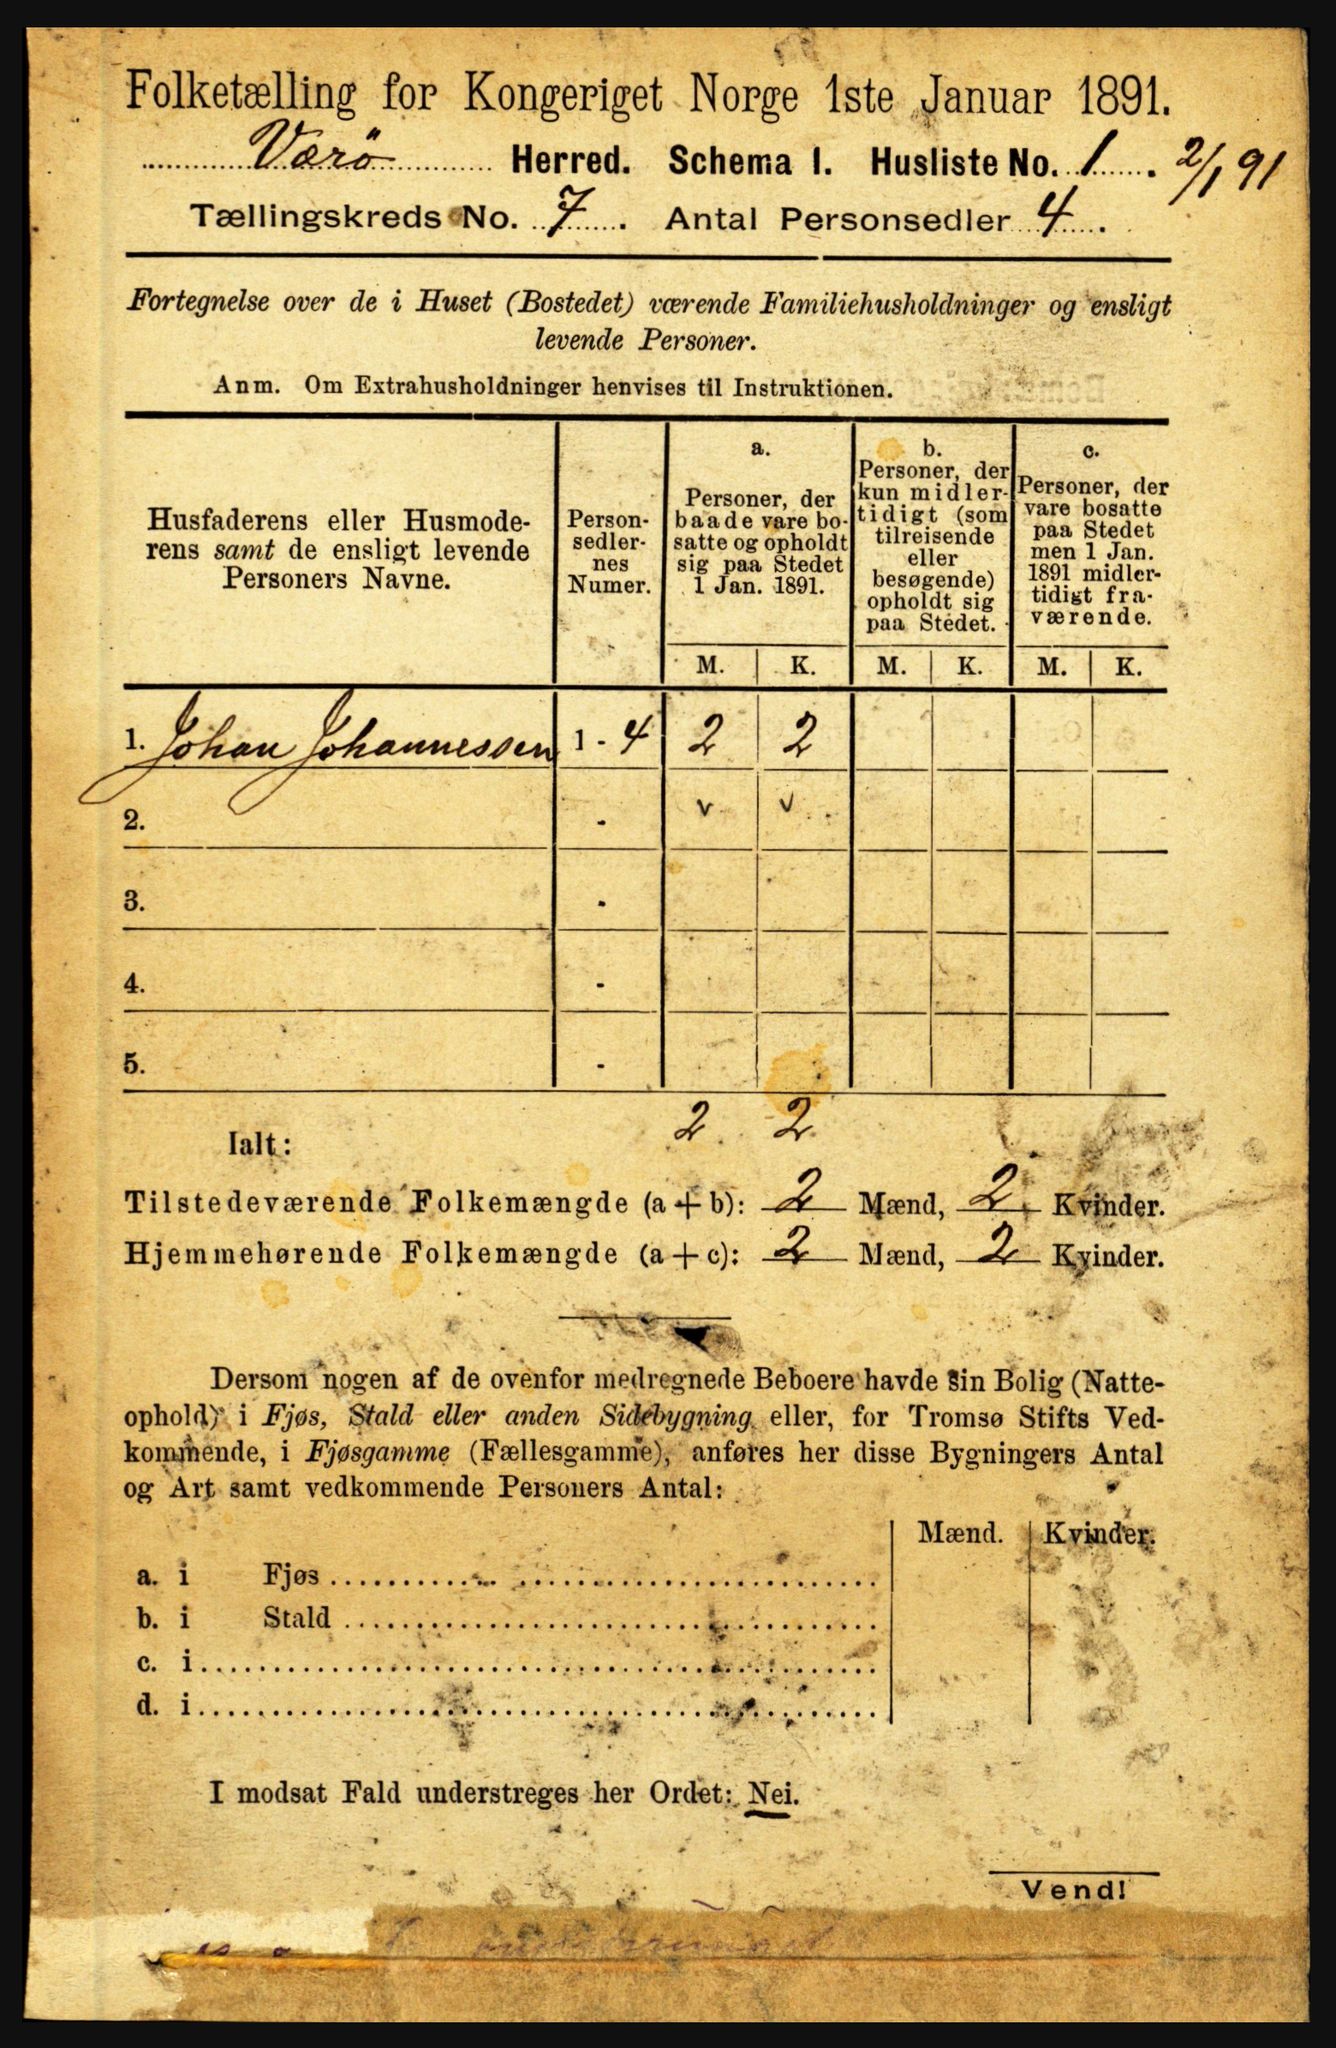 Folketælling for Kongeriget Norge 1ste Januar 1891.
Værö Herred. Schema I. Husliste No. 1. 2/1 91
Tællingskreds No. 7. Antal Personsedler 4.
Fortegnelse over de i Huset (Bostedet) værende Familiehusholdninger og ensligt
levende Personer.
Anm. Om Extrahusholdninger henvises til Instruktionen.
Husfaderens eller Husmode-
rens samt de ensligt levende
Personers Navne.
Person-
sedler-
nes
Numer.
a.
Personer, der
baade vare bo-
satte og opholdt
sig paa Stedet
1 Jan. 1891.
b.
Personer, der
kun midler-
tidigt (som
tilreisende
eller
besøgende)
opholdt sig
paa Stedet.
c.
Personer, der
vare bosatte
paa Stedet
men 1 Jan.
1891 midler-
tidigt fra-
værende.
M. K. M. K. M. K.
1. Johan Johannessen 1 - 4 2 2
2. - v v
3. -
4. -
5. -
Ialt: 2 2
Tilstedeværende Folkemængde (a + b): 2 Mænd, 2 Kvinder.
Hjemmehørende Folkemængde (a + c): 2 Mænd, 2 Kvinder.
Dersom nogen af de ovenfor medregnede Beboere havde sin Bolig (Natte-
ophold) i Fjøs, Stald eller anden Sidebygning eller, for Tromsø Stifts Ved-
kommende, i Fjøsgamme (Fællesgamme), anføres her disse Bygningers Antal
og Art samt vedkommende Personers Antal:
Mænd. Kvinder.
a. i Fjøs
b. i Stald
c. i
d. i
I modsat Fald understreges her Ordet: Nei.
Vend!